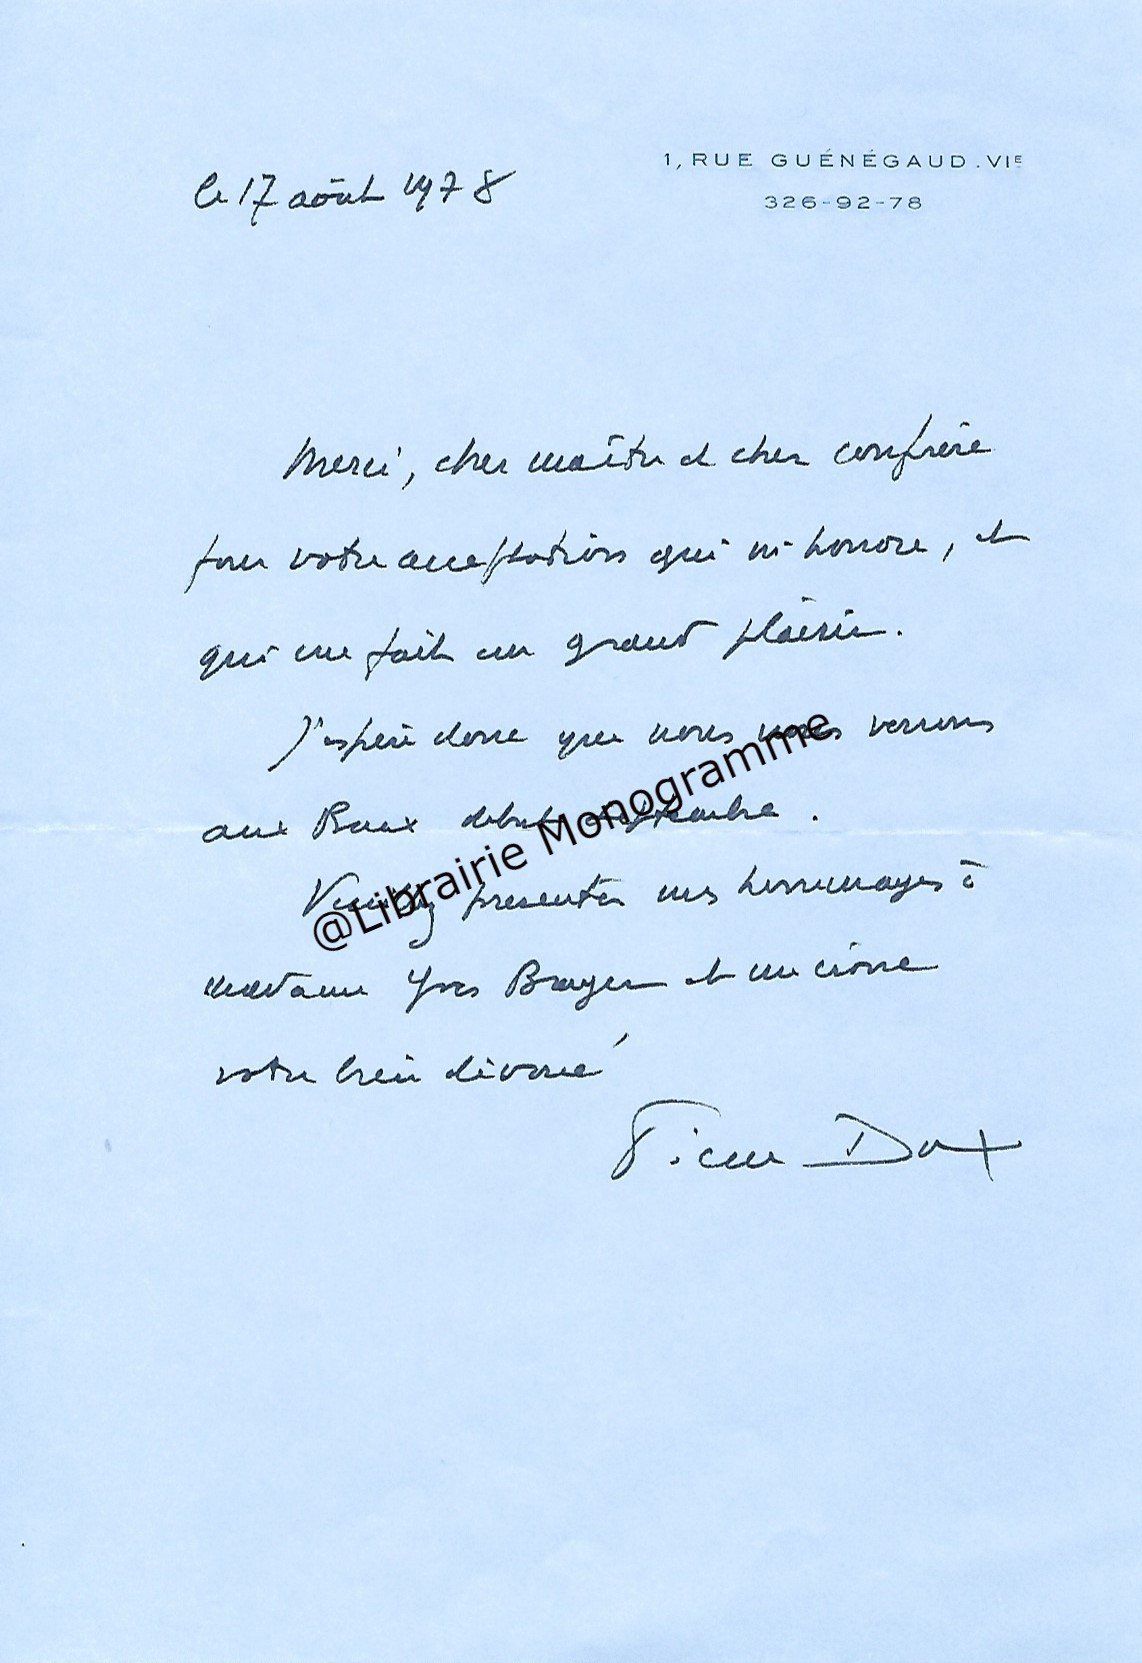 1, RUE GUÉNÉGAUD. VIE
326-92-78
le 17 août 1978
Merci, cher maître et cher confrère
pour votre acceptation qui m'honore, et
qui me fait un grand plaisir.
J'espère donc que nous nous verrons
aux Baux début septembre.
@Librairie Monogramme
Veuillez présenter mes hommages à
madame Yves Brayer et me croire
votre bien dévoué
Pierre Dux